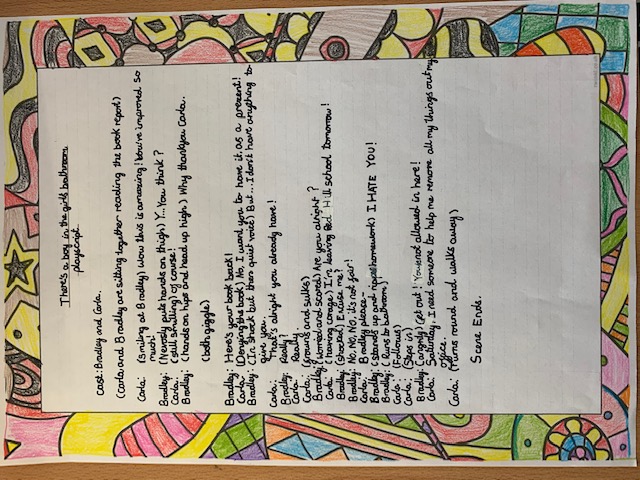 There's a boy in the girls bathroom
playscript.
cast: Bradley and Carla.
(Carla and Bradley are sitting together reading the book report)
Carla: (Smiling at Bradley) Wow this is amazing! You've improved so
much!
Bradley: (Nervosly puts hands on thigh) Y... You think?
Carla: (still smiling) Of course!
Bradley: (hands on hips and head up high) Why thankyou Carla.
(both giggle)
Bradley: Here's your book back!
Carla: (Denying the book) No, I want you to have it, as a present!
Bradley: (In shock but then quiet voice) But... I don't have anything to
give you.
Carla: That's alright you already have!
Bradley: Really?
Carla: Really
Carla: (frowns and sulks)
Bradley: (Worried and scared) Are you alright?
Carla: (having corage) I'm leaving Red Hill school tomorrow!
Bradley: (shocked) Excuse me?
Bradley: No, No, No, it's not fair!
Carla: Bradley please-
Bradley: (stands up and rips homework) I HATE YOU!
Bradley: (Runs to bathroom)
Carla: (Follows)
Carla: (Steps in)
Bradley: (angrily) Get out! You not allowed in here!
Carla: Saturday, I need someone to help me remove all my things out my
office.
Carla: (Turns round and walks away)
Scene Ends.